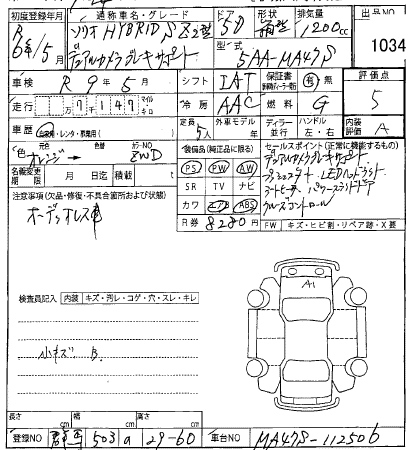 初度登録年月 通称車名・グレード ドア 形状 排気量 出品NO
R 6年/5月 ソリオ HYBRID SZ型 5D 箱型 1200cc 1034
デュアルカメラブレーキサポート 型式 5AA-MA47S
車検 R 9年 5月 シフト IAT 保証書 有 無 評価点
走行 万 7千147 マイル Km 冷房 AAC 燃料 G 5
定員 外車モデル ディーラー ハンドル 内装
車歴 自家用・レンタ・事業用( ) 5人 年 並行 左・右 評価 A
色 元色 カラーNO 装備品(純正品に限る) セールスポイント(正常に機能するもの)
オレンジ ZWD PS PW AW デュアルカメラブレーキサポート
名義変更期限 月 日迄 積載 t SR TV ナビ プッシュスタート LEDヘッドライト
注意事項(欠品・修復・不具合箇所および状態) カワ エアB ABS シートヒーター パワースライドドア
オーディオレス車 R券 8280円 クルーズコントロール
FW キズ・ヒビ割・リペア跡・X要
検査員記入 内装 キズ・汚レ・コゲ・穴・スレ・キレ
A1
小キズ B
長さ cm 幅 cm 高さ cm
登録NO 503 a 29-60 車台NO MA47S-112506